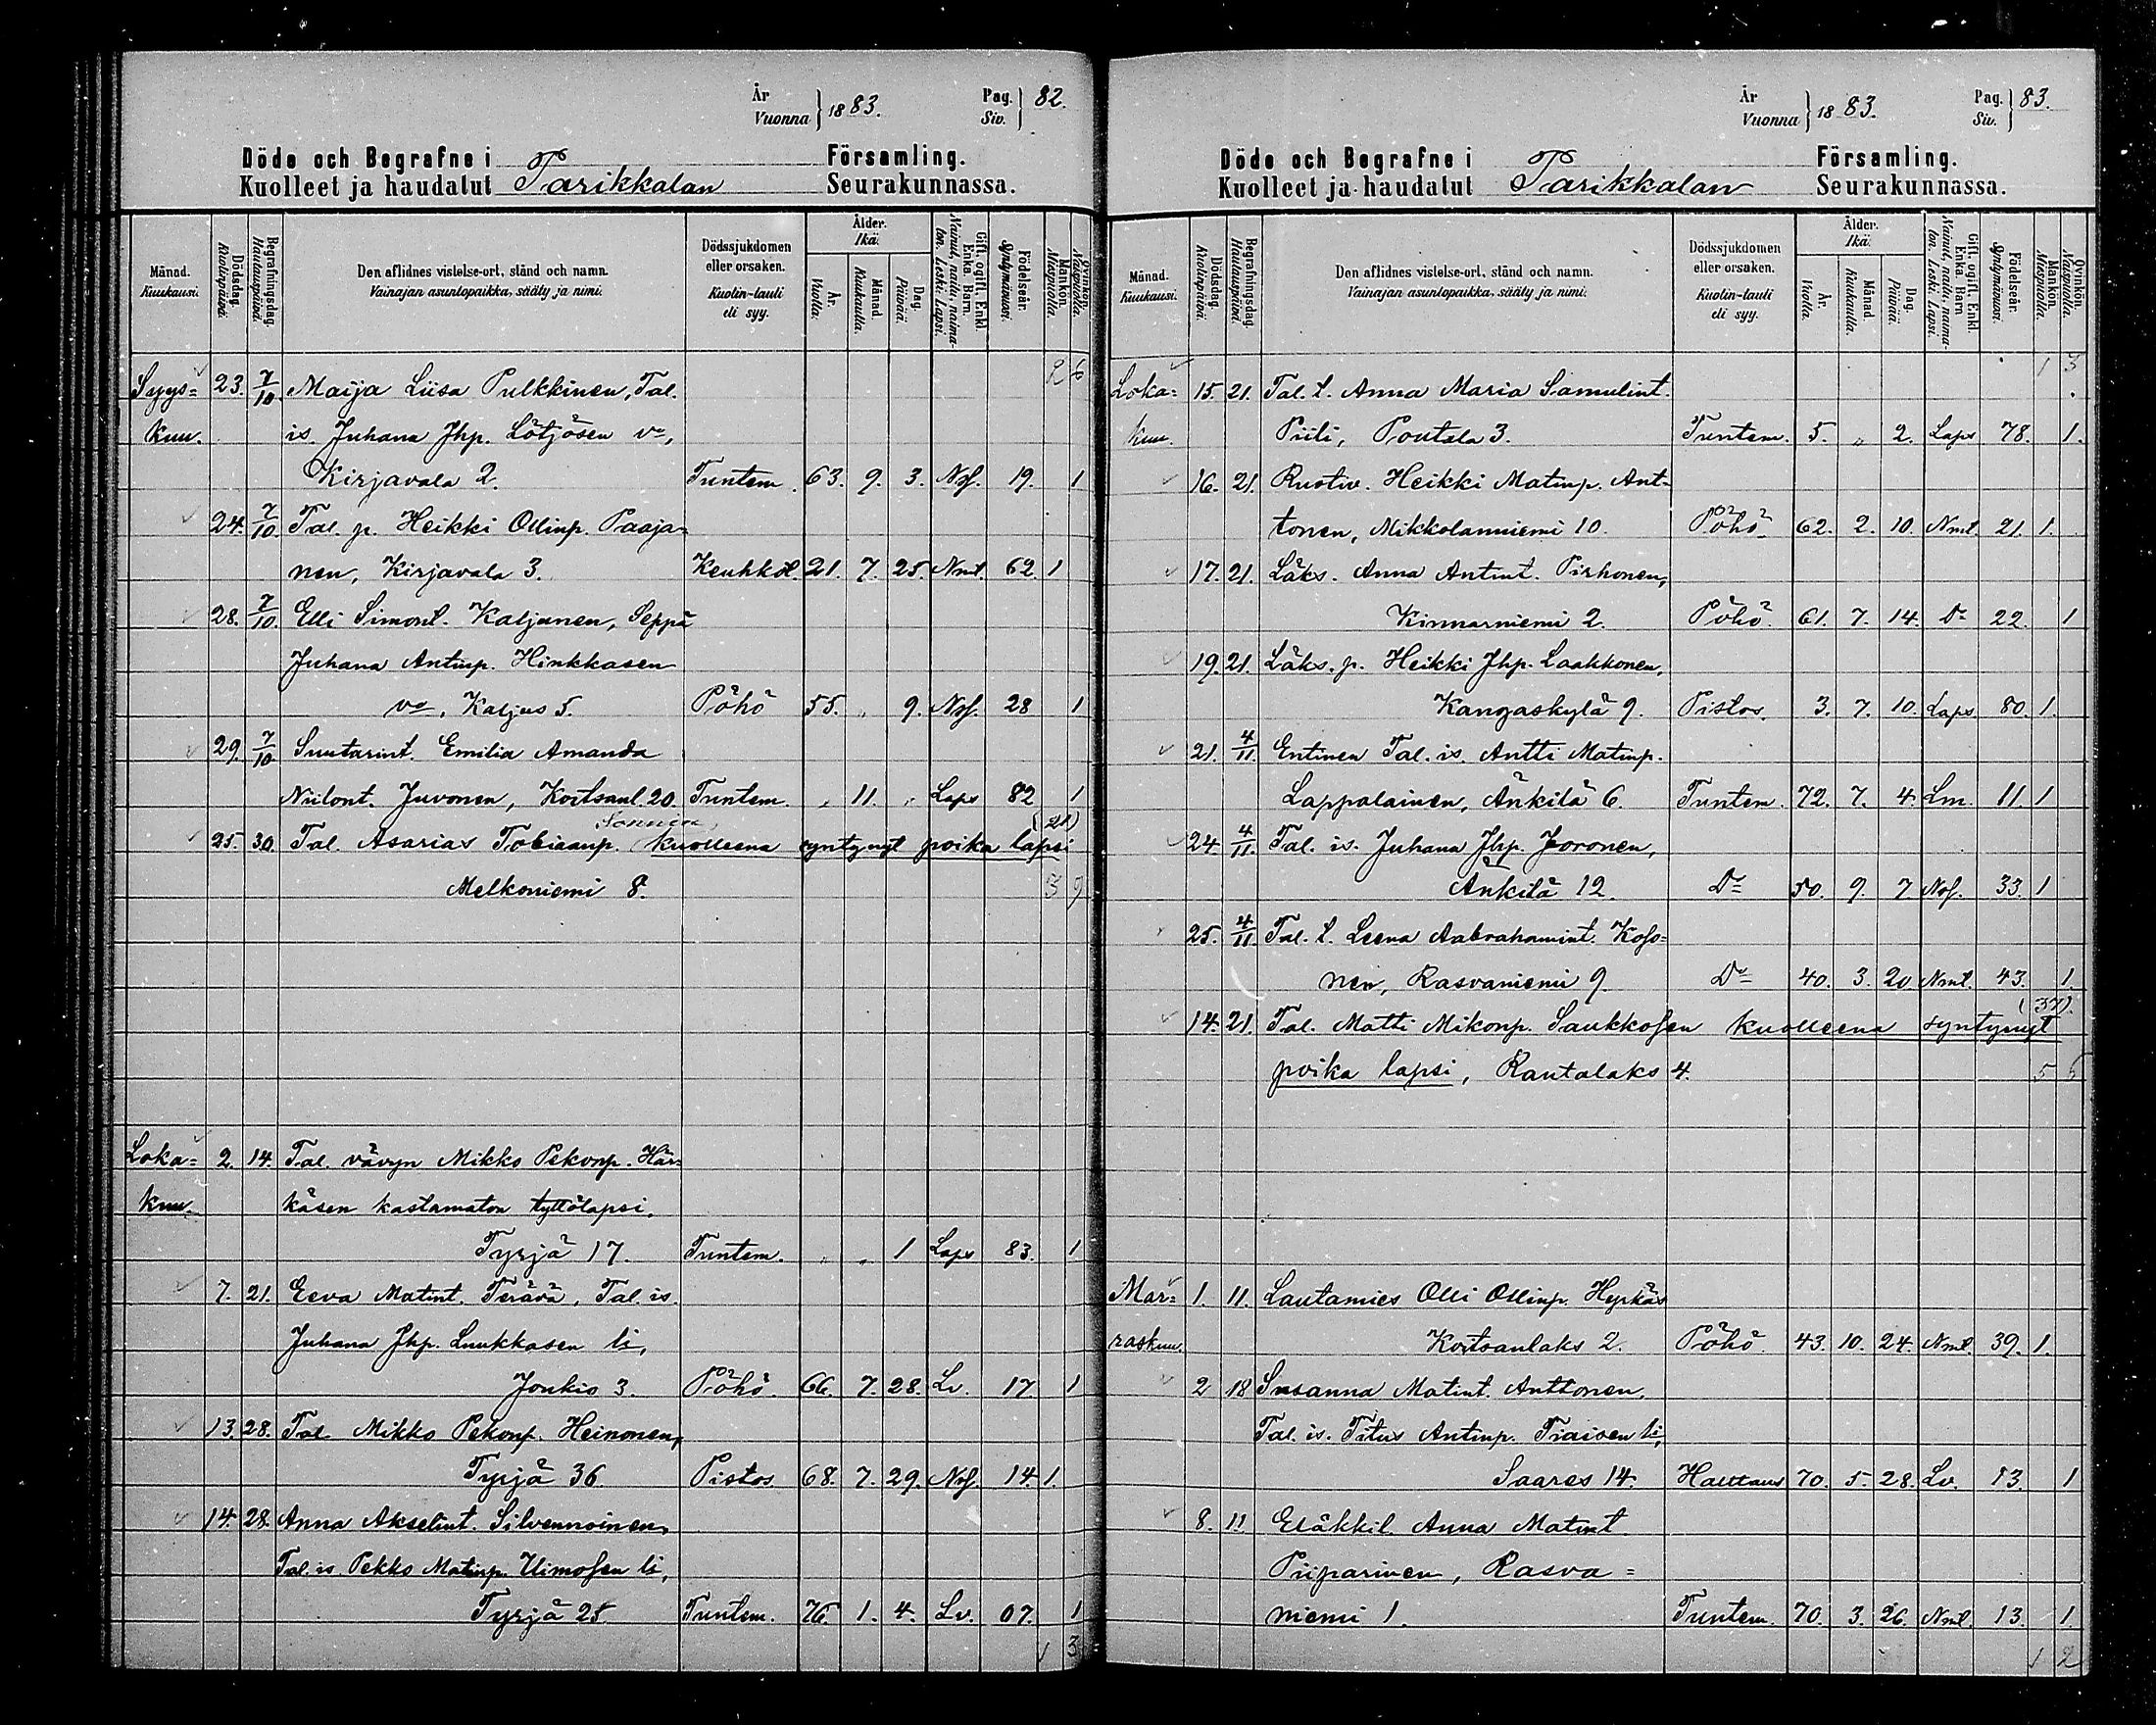 År
Vuonna } 1883.
Pag.
Siv. } 82.
Döde och Begrafne i Församling.
Kuolleet ja haudatut Parikkalan Seurakunnassa.
Månad. Kuukausi. Dödsdag. Kuolinpäivä. Begrafningsdag. Hautauspäivä. Den aflidnes vistelse-ort, stånd och namn. Vainajan asuntopaikka, sääty ja nimi. Dödssjukdomen eller orsaken. Kuolin-tauti eli syy. Ålder. Ikä. År. Vuotta. Månad. Kuukautta. Dag. Päivää. Gift, ogift, Enkl. Enka. Barn. Nainut, naitu, naimaton. Leski. Lapsi. Födelseår. Syntymävuosi. Mankön. Miespuolia. Qvinkön. Naispuolia.
2 6
Syys= 23. 7/10 Maija Liisa Pulkkinen, Tal.
kuu. is. Juhana Jhp. Lötjösen vo,
Kirjavala 2. Tuntem. 63. 9. 3. Naf. 19. 1
24. 7/10. Tal. p. Heikki Ollinp. Paaja=
nen, Kirjavala 3. Keuhköl. 21. 7. 25. Nmt. 62. 1
28. 7/10. Elli Simont. Kaljunen, Seppä
Juhana Antinp. Hinkkasen
vo, Kaljus 5. Pöhö 55. „ 9. Naf. 28 1
29. 7/10 Suutarint. Emilia Amanda
Niilont. Juvonen, Koitsanl. 20. Tuntem. „ 11. „ Laps 82 1
Sonnin (21)
25. 30. Tal. Asarias Tobiaanp. kuolleena syntynyt poika lapsi
Melkoniemi 8. 3 9
Loka= 2. 14. Tal. vävyn Mikko Pekonp. Här=
kuu. käsen kastamaton tyttölapsi,
Tyrjä 17. Tuntem. „ „ 1 Laps 83. 1
7. 21. Eeva Matint. Terävä, Tal. is.
Juhana Jhp. Luukkasen li,
Joukio 3. Pöhö. 66. 7. 28. Lv. 17 1
13. 28. Tal. Mikko Pekonp. Heinonen,
Tyrjä 36. Pistos. 68. 7. 29. Naf. 14. 1.
14. 28. Anna Akselint. Silvennoinen,
Tal. is. Pekko Matinp. Uimosen li,
Tyrjä 25. Tuntem. 76. 1. 4. Lv. 07. 1
1 3
År
Vuonna } 1883.
Pag.
Siv. } 83.
Döde och Begrafne i Församling.
Kuolleet ja haudatut Parikkalan Seurakunnassa.
Månad. Kuukausi. Dödsdag. Kuolinpäivä. Begrafningsdag. Hautauspäivä. Den aflidnes vistelse-ort, stånd och namn. Vainajan asuntopaikka, sääty ja nimi. Dödssjukdomen eller orsaken. Kuolin-tauti eli syy. Ålder. Ikä. År. Vuotta. Månad. Kuukautta. Dag. Päivää. Gift, ogift, Enkl. Enka. Barn. Nainut, naitu, naimaton. Leski. Lapsi. Födelseår. Syntymävuosi. Mankön. Miespuolia. Qvinkön. Naispuolia.
1 3
Loka= 15. 21. Tal. t. Anna Maria Samulint.
kuu. Piili, Poutala 3. Tuntem. 5. „ 2. Laps 78. 1.
16. 21. Ruotiv. Heikki Matinp. Ant=
tonen, Mikkolanniemi 10. Pöhö 62. 2. 10. Nmt. 21. 1.
17. 21. Läks. Anna Antint. Pirhonen,
Kinnarniemi 2. Pöhö. 61. 7. 14. Do 22. 1
19. 21. Läks. p. Heikki Jhp. Laakkonen,
Kangaskylä 9. Pistos. 3. 7. 10. Laps 80. 1.
21. 4/11. Entinen Tal. is. Antti Matinp.
Lappalainen, Änkilä 6. Tuntem. 72. 7. 4. Lm. 11. 1
24. 4/11. Tal. is. Juhana Jhp. Joronen,
Änkilä 12. Do 50. 9. 7. Naf. 33. 1
25. 4/11. Tal. t. Leena Aabrahamint. Koso=
nen, Rasvaniemi 9. Do 40. 3. 20. Nmt. 43. 1.
(37).
14. 21. Tal. Matti Mikonp. Saukkosen kuolleena syntynyt
poika lapsi, Rautalaks 4. 5 6
Mar= 1. 11. Lautamies Olli Ollinp. Hyrkäs
raskuu. Koitsanlaks 2. Pöhö 43. 10. 24. Nmt. 39. 1.
2 18 Susanna Matint. Anttonen,
Tal. is. Titus Antinp. Tiaisen li,
Saares 14. Halttaus 70. 5. 28. Lv. 13. 1
8. 11 Eläkkil. Anna Matint.
Piiparinen, Rasva=
niemi 1. Tuntem. 70. 3. 26. Nmt. 13. 1.
1 2